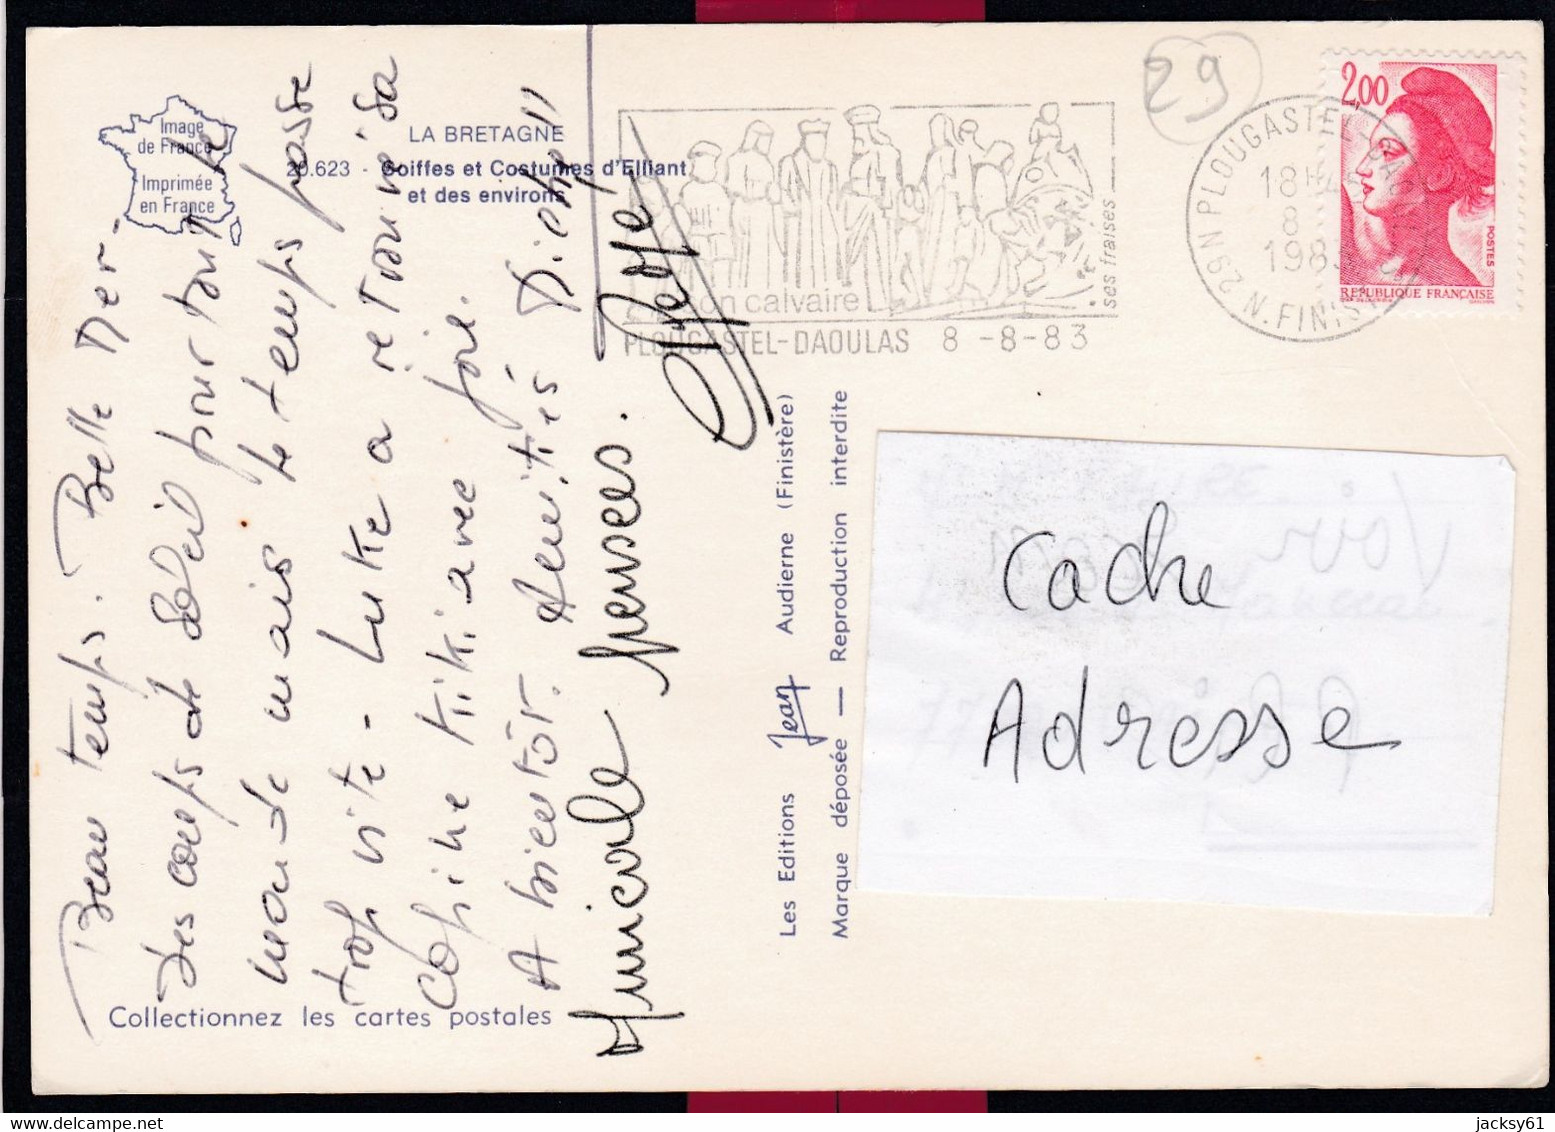 Image
de France
Imprimée
en France
LA BRETAGNE
29.623 - Coiffes et Costumes d'Elliant
et des environs
Beau temps. Belle Mer.
Des coups de soleil pour tout le
monde mais le temps passe
trop vite - Luke a retrouvé sa
copine Kiki avec joie.
A bientôt. Amitiés
Amicale pensées.
Collectionnez les cartes postales
Les Editions Jean Audierne (Finistère)
Marque déposée — Reproduction interdite
son calvaire
ses fraises
PLOUGASTEL-DAOULAS 8 -8-83
29
29N PLOUGASTEL-DAOULAS
18H
8
1983
N. FINIS
2,00
POSTES
REPUBLIQUE FRANÇAISE
Cache
Adresse
jacksy61